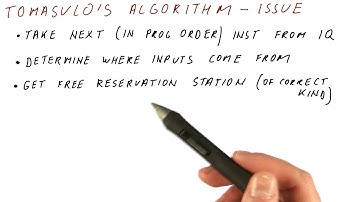 TOMASULO'S ALGORITHM - ISSUE
• TAKE NEXT (IN PROG ORDER) INST FROM IQ
• DETERMINE WHERE INPUTS COME FROM
• GET FREE RESERVATION STATION (OF CORRECT
KIND)